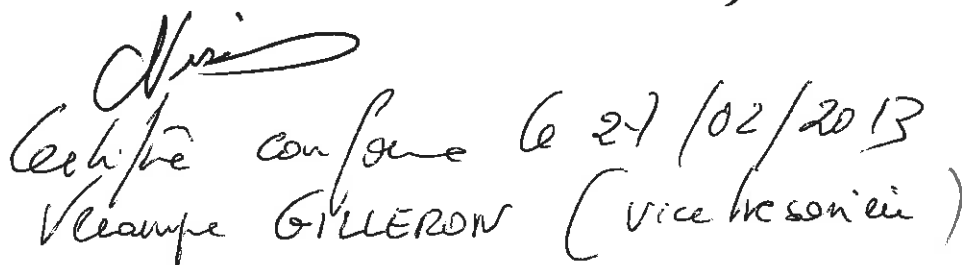 Certifié conforme le 27/02/2013
GILLERON (vice trésorière)